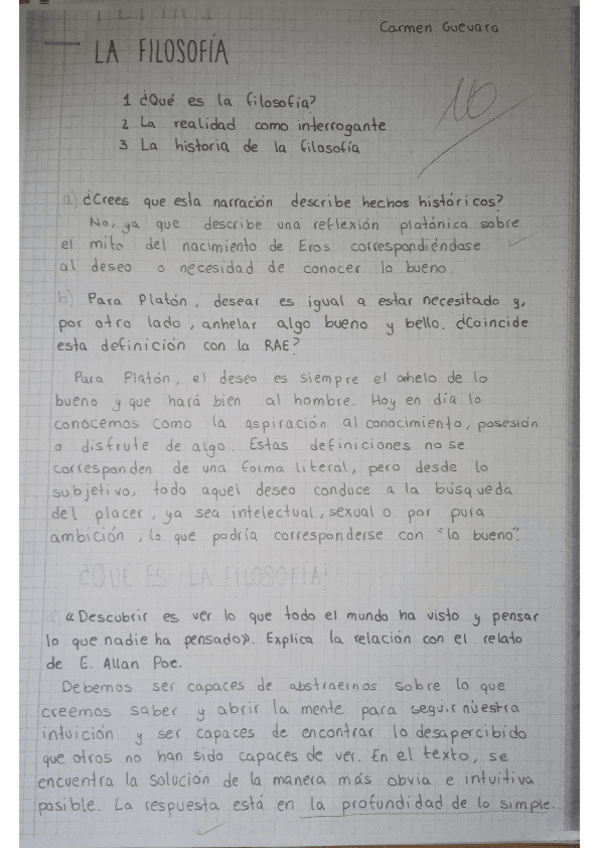 Carmen Guevara
LA FILOSOFÍA
1 ¿Qué es la filosofía?
2 La realidad como interrogante
3 La historia de la filosofía
10
a) ¿Crees que esta narración describe hechos históricos?
No, ya que describe una reflexión platónica sobre
el mito del nacimiento de Eros correspondiéndose
al deseo o necesidad de conocer lo bueno.
b) Para Platón, desear es igual a estar necesitado y,
por otro lado, anhelar algo bueno y bello. ¿Coincide
esta definición con la RAE?
Para Platón, el deseo es siempre el anhelo de lo
bueno y que hará bien al hombre. Hoy en día lo
conocemos como la aspiración al conocimiento, posesión
o disfrute de algo. Estas definiciones no se
corresponden de una forma literal, pero desde lo
subjetivo, todo aquel deseo conduce a la búsqueda
del placer, ya sea intelectual, sexual o por pura
ambición; lo que podría corresponderse con "lo bueno".
¿QUÉ ES LA FILOSOFÍA?
a) «Descubrir es ver lo que todo el mundo ha visto y pensar
lo que nadie ha pensado». Explica la relación con el relato
de E. Allan Poe.
Debemos ser capaces de abstraernos sobre lo que
creemos saber y abrir la mente para seguir nuestra
intuición y ser capaces de encontrar lo desapercibido
que otros no han sido capaces de ver. En el texto, se
encuentra la solución de la manera más obvia e intuitiva
posible. La respuesta está en la profundidad de lo simple.